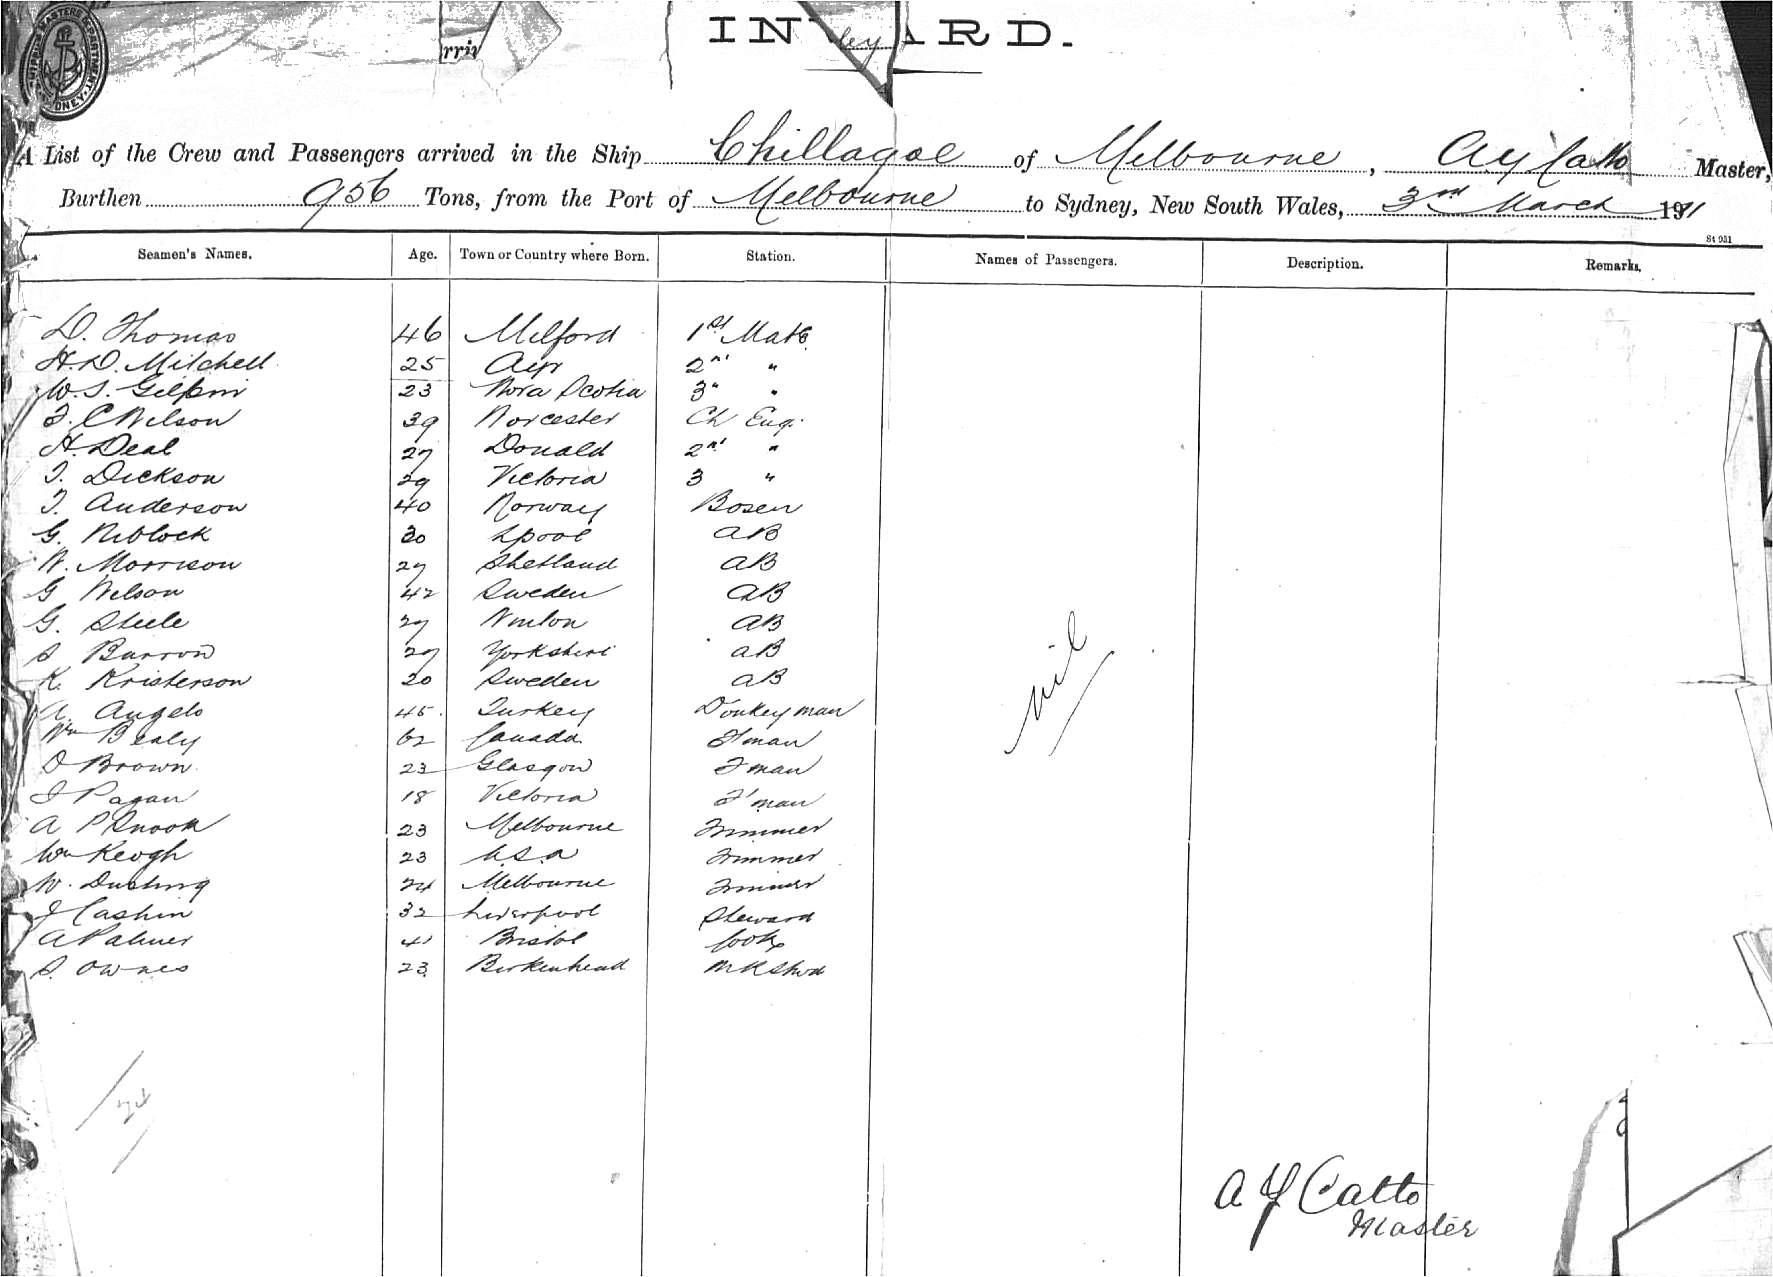 SHIPPING MASTERS DEPARTMENT SYDNEY
INWARD.
A List of the Crew and Passengers arrived in the Ship Chillagoe of Melbourne, A Y Catto Master,
Burthen 956 Tons, from the Port of Melbourne to Sydney, New South Wales, 3rd March 1911
St 931
Seamen's Names. Age. Town or Country where Born. Station. Names of Passengers. Description. Remarks.
D. Thomas 46 Milford 1st Mate
H. D. Mitchell 25 Ayr 2nd "
W. S. Gilpin 23 Nova Scotia 3" "
F. C Wilson 39 Worcester Ch Eng.
H. Deal 27 Donald 2nd "
T. Dickson 29 Victoria 3 "
T. Anderson 40 Norway Bosen
G. Niblock 30 Lpool AB
W. Morrison 27 Shetland AB
G Nelson 42 Sweden AB
G. Steele 27 AB
S Barron 29 Yorkshire AB
K. Kristerson 20 Sweden AB
A. Angelo 45 Turkey Donkeyman
Wm Bealy 62 Canada F'man
D Brown 23 Glasgow F man
J Pagan 18 Victoria F'man
A P Snook 23 Melbourne Trimmer
Wm Keogh 23 U.S.A Trimmer
W. Dushing 24 Melbourne Trimmer
J Cashin 32 Liverpool Steward
A Palmer 41 Bristol Cook
S. Ownes 23 Birkenhead M R Stwd
nil
A Y Catto
Master